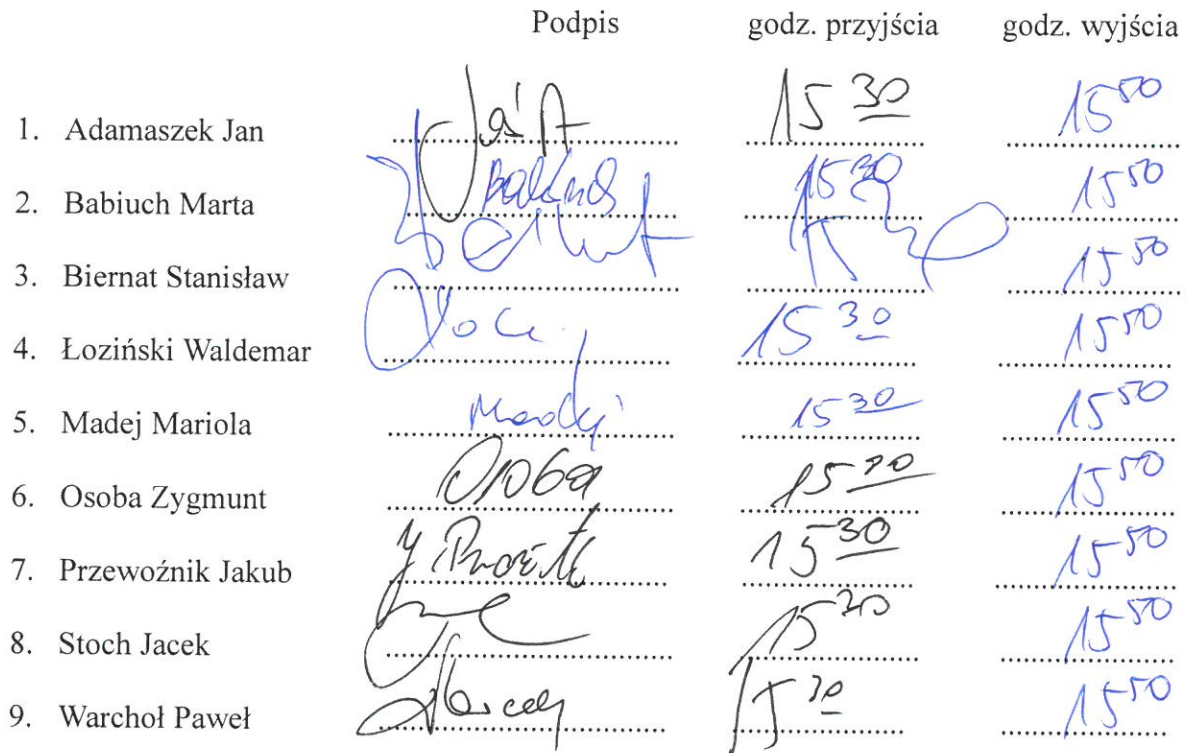 Podpis godz. przyjścia godz. wyjścia
1. Adamaszek Jan 15 30 15 50
2. Babiuch Marta 15 30 15 50
3. Biernat Stanisław 15 50
4. Łoziński Waldemar 15 30 15 50
5. Madej Mariola Madej 15 30 15 50
6. Osoba Zygmunt Osoba 15 30 15 50
7. Przewoźnik Jakub 15 30 15 50
8. Stoch Jacek 15 30 15 50
9. Warchoł Paweł 15 30 15 50